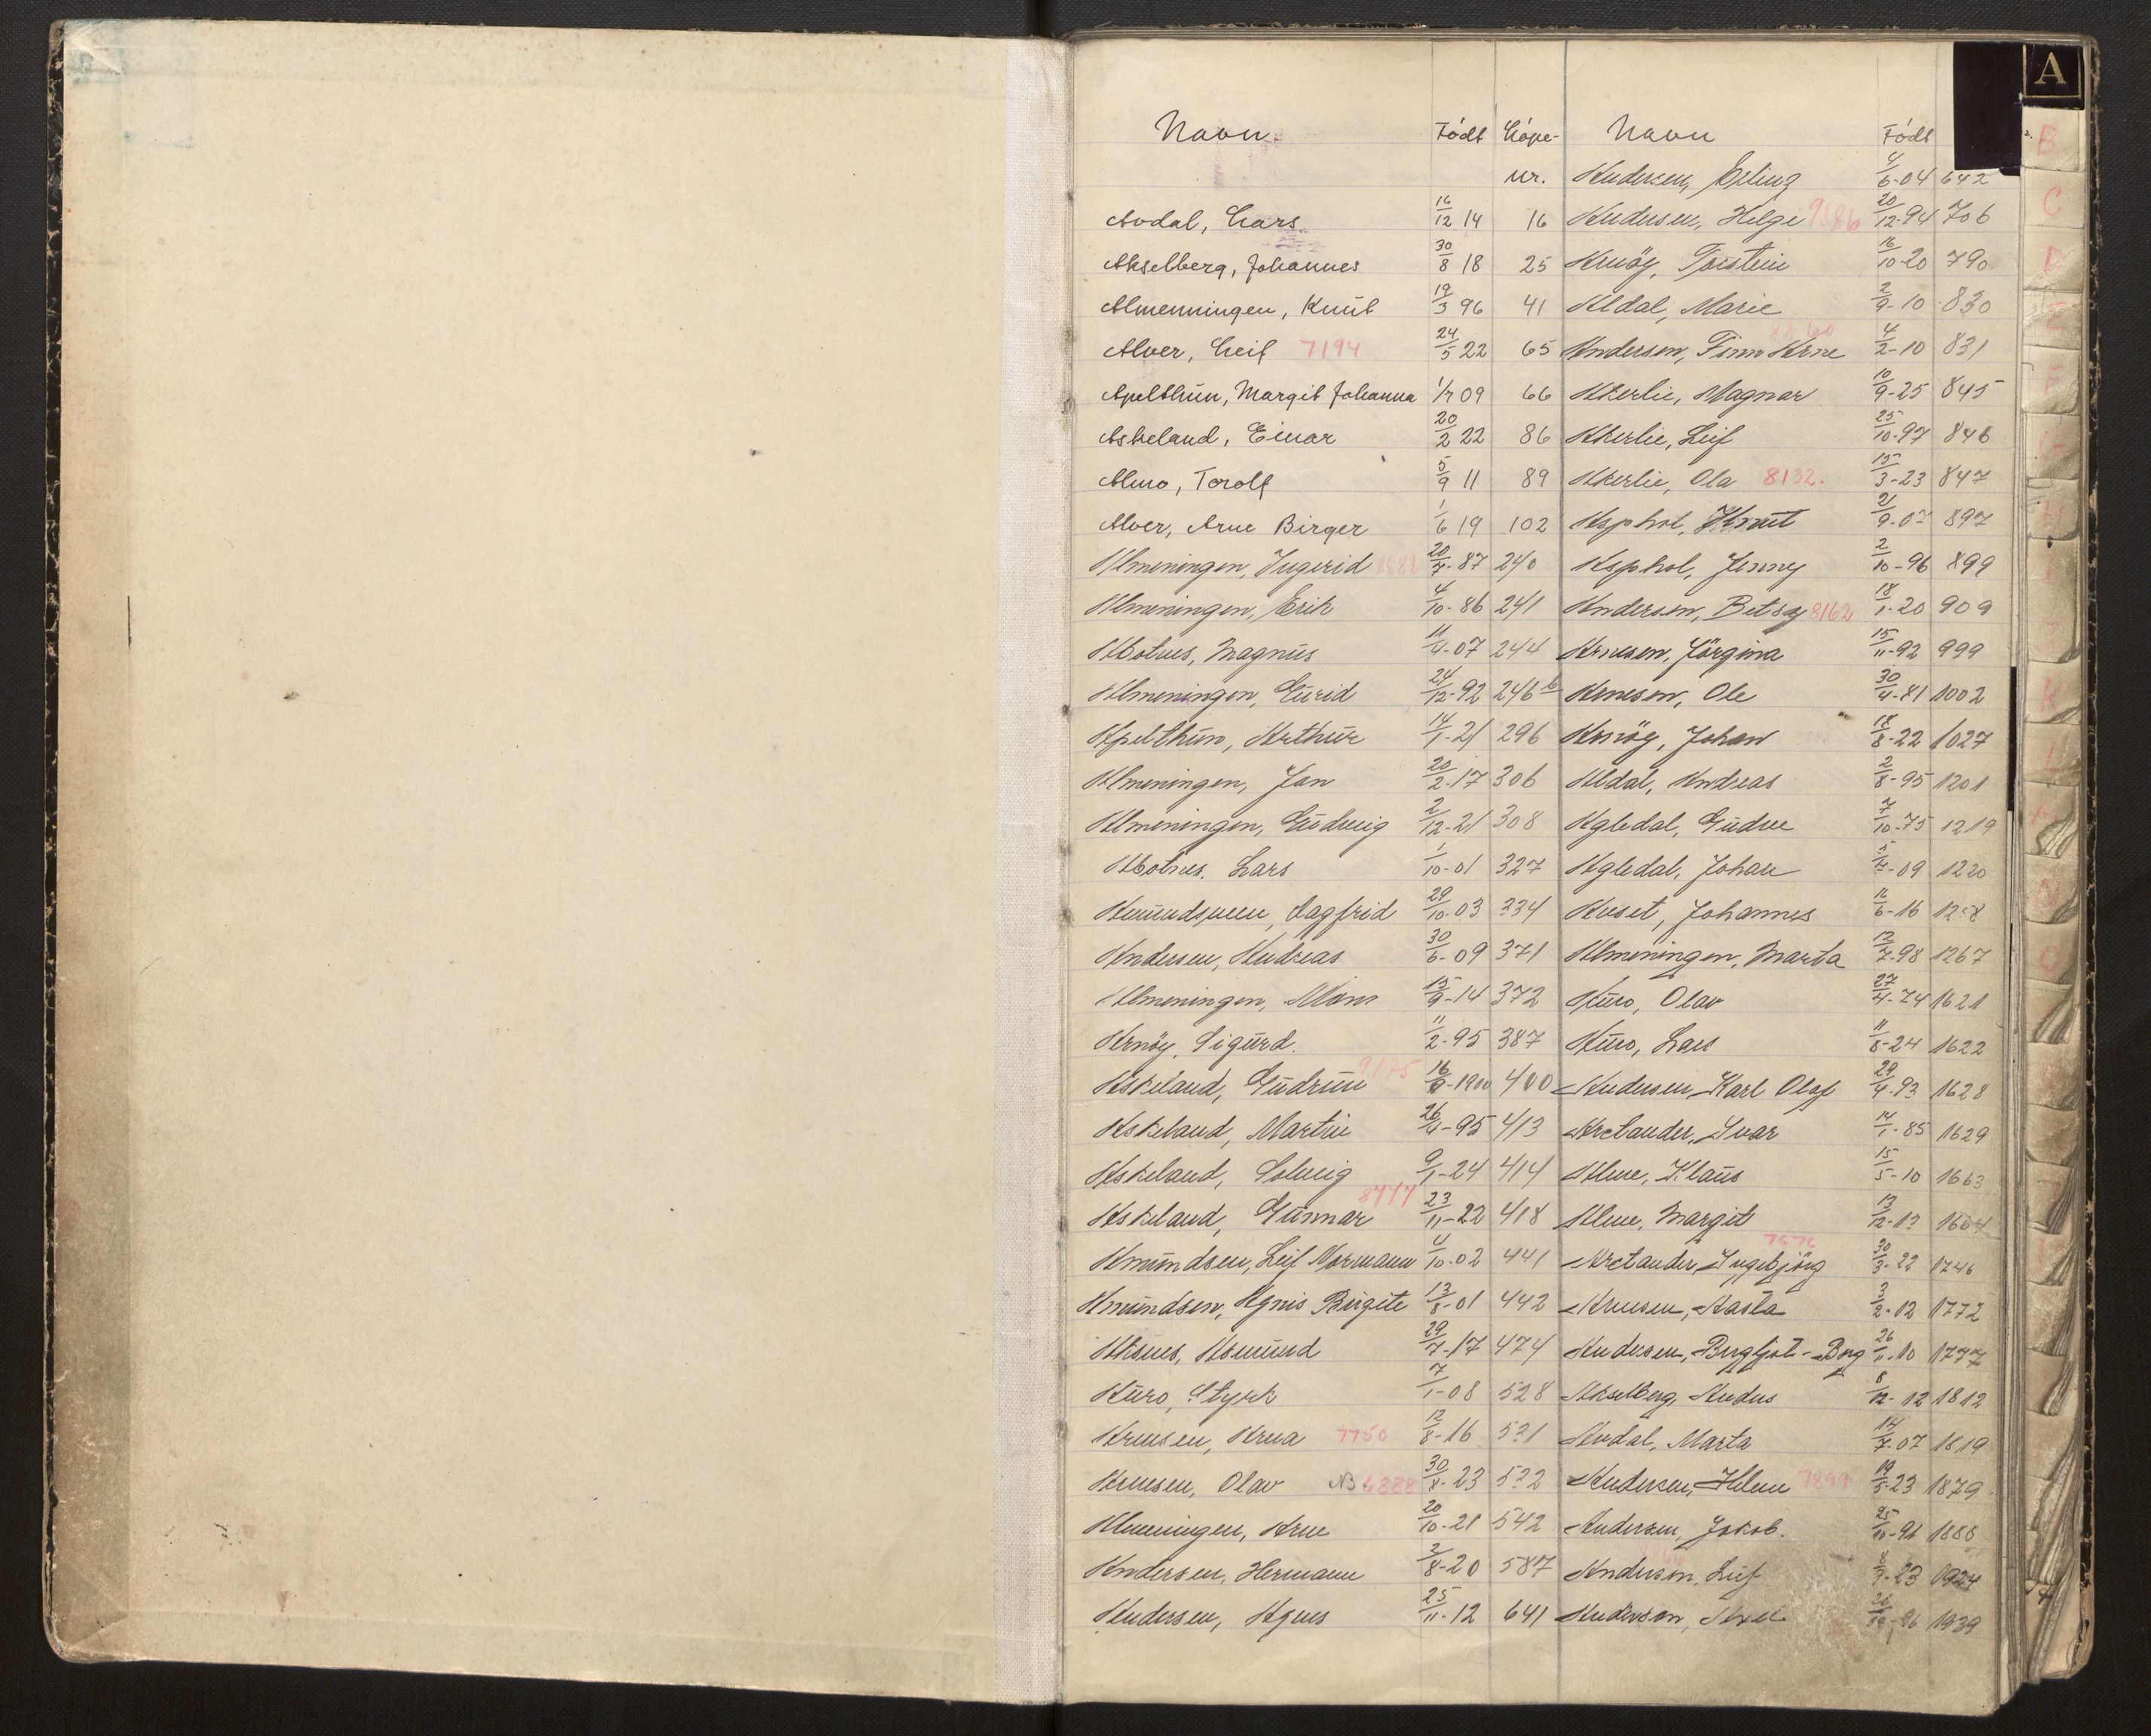 A
Navn Født Løpe-
nr.
Avdal, Lars 16/12 14 16
Akselberg, Johannes 30/8 18 25
Almenningen, Knut 19/3 96 41
Alver, Leif 7194 24/5 22 65
Apelthun, Margit Johanna 1/7 09 66
Askeland, Einar 20/2 22 86
Almo, Torolf 5/9 11 89
Alver, Arne Birger 1/6 19 102
Almeningen, Ingerid 20/7-87 240
Almeningen, Erik 4/10-86 241
Abotnes, Magnus 11/4-07 244
Almeningen, Gurid 24/12-92 246 b
Apelthun, Arthur 14/1-21 296
Almeningen, Jan 20/2-17 306
Almeningen, Ludvig 2/12-21 308
Abotnes, Lars 1/10-01 327
Amundsen, Dagfrid 29/10-03 334
Andersen, Andreas 30/6-09 371
Almeningen, Mons 15/9-14 372
Arnöy, Sigurd. 11/2-95 387
Askeland, Gudrun 9175 16/9-1900 400
Askeland, Martin 26/4-95 413
Askeland, Solveig 9/1-24 414
Askeland, Gunnar 8447 23/11-22 418
Amundsen, Leif Normann 4/10-02 441
Amundsen, Agnis Birgite 13/8-01 442
Aksnes, Asmund 29/7-17 474
Auro, Styrk 7/1-08 528
Arnesen, Arna 7750 12/8-16 531
Arnesen, Olav NB 4888 30/8-23 532
Almeningen, Arne 20/10-21 542
Andersen, Hermann 3/8-20 587
Andersen, Agnes 25/11-12 641
Navn Født
Andersen, Erling 4/6-04 642
Andersen, Helge 9886 20/12-94 706
Arnöy, Torstein 16/10-20 790
Aldal, Marie 2/9-10 830
Andersen, Finn Arne 4/2-10 831
Akerlie, Magnar 10/9-25 845
Akerlie, Leif 25/10-97 846
Akerlie, Ola 8132. 15/3-23 847
Asphol, Knut 21/9-07 897
Asphol, Jenny 2/10-96 899
Andersen, Betsy 8162 18/1-20 909
Arnesen, Jörgina 15/11-92 999
Arnesen, Ole 30/4-81 1002
Arnöy, Johan 18/8-22 1027
Aldal, Andreas 2/8-95 1201
Agledal, Gudve 7/10-75 1219
Agledal, Johan 09 1220
Aaset, Johannes 16/6-16
Almeningen, Marta 13/7-98 1267
Auro, Olav 27/4-74 1621
Auro, Lars 11/8-24 1622
Andersen, Karl Olaf 29/4-93 1628
Arctander, Ivar 14/1-85 1629
Alme, Klaus 15/5-10 1663
Alme, Margit 13/12-13 1664
Arctander, Ingebjörg 7676 30/3-22 1746
Arnesen, Aasta 3/2-12 1772
Andersen, Bergljot-Borg 26/11-10 1777
Akselberg, Andus 8/12-12 1812
Avdal, Marta 14/7-07 1819
Andersen, Helene 7899 19/5-23 1879
Andersen, Jakob. 25/10-96 1886
Andersen, Leif 23 1924
Andersen, 1939
B
C
D
E
F